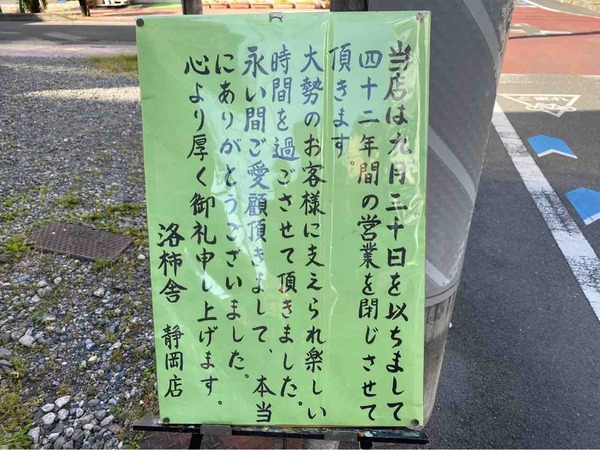 当店は九月三十日を以ちまして
四十二年間の営業を閉じさせて
頂きます。
大勢のお客様に支えられ楽しい
時間を過ごさせて頂きました。
永い間ご愛顧頂きまして、本当
にありがとうございました。
心より厚く御礼申し上げます。
洛柿舎 静岡店